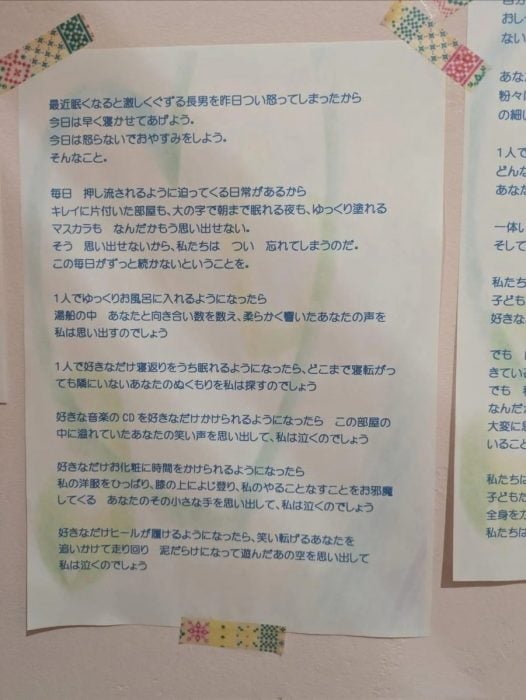 最近眠くなると激しくぐずる長男を昨日つい怒ってしまったから
今日は早く寝かせてあげよう。
今日は怒らないでおやすみをしよう。
そんなこと。
毎日　押し流されるように迫ってくる日常があるから
キレイに片付いた部屋も、大の字で朝まで眠れる夜も、ゆっくり塗れる
マスカラも　なんだかもう思い出せない。
そう　思い出せないから、私たちは　つい　忘れてしまうのだ。
この毎日がずっと続かないということを。
1人でゆっくりお風呂に入れるようになったら
湯船の中　あなたと向き合い数を数え、柔らかく響いたあなたの声を
私は思い出すのでしょう
1人で好きなだけ寝返りをうち眠れるようになったら、どこまで寝転がっ
ても隣にいないあなたのぬくもりを私は探すのでしょう
好きな音楽のCDを好きなだけかけられるようになったら　この部屋の
中に溢れていたあなたの笑い声を思い出して、私は泣くのでしょう
好きなだけお化粧に時間をかけられるようになったら
私の洋服をひっぱり、膝の上によじ登り、私のやることなすことをお邪魔
してくる　あなたのその小さな手を思い出して、私は泣くのでしょう
好きなだけヒールが履けるようになったら、笑い転げるあなたを
追いかけて走り回り　泥だらけになって遊んだあの空を思い出して
私は泣くのでしょう
おし
ない
あな
粉々
の細
1人で
どんな
あなた
一体い
そして
私たち
子ども
好きな
でも
きてい
でも
なんだ
大変に
いること
私たちは
子どもた
全身を
私たちは